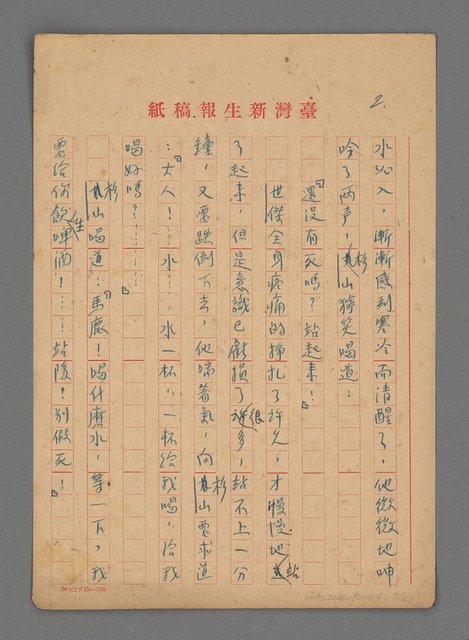 臺灣新生報稿紙
2.
水沁入，漸漸感到寒冷而清醒了，他微微地呻
吟了兩声，杉山獰笑喝道：
「還沒有死嗎？站起來！」
世傑全身疼痛的掙扎了許久，才慢慢地站
了起來，但是意識已虧損了很多，站不上一分
鐘，又要跌倒下去，他喘著氣，向杉山要求道
：「大人！……水……水一杯，一杯給我喝，給我
喝好嗎？………」
杉山喝道：「馬鹿！喝什麼水，等一下，我
要給你飲生啤酒！……站後！別假死！」
36×2×15=100